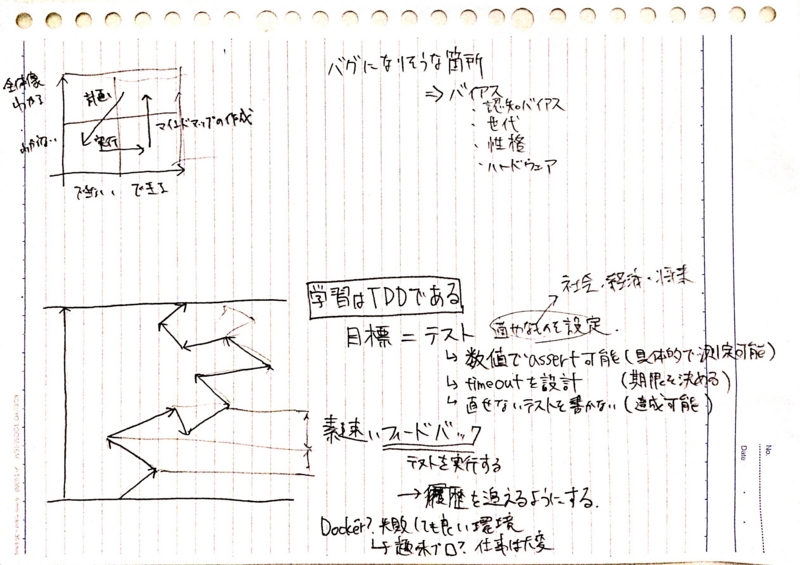 バグになりそうな箇所
⇒ バイアス
・認知バイアス
・世代
・性格
・ハードウェア
全体像
わかる
計画
マインドマップの作成
実行
できない できる
学習はTDDである
社会・経済・将来
目標 = テスト 適切なものを設定.
↳ 数値でassert可能(具体的で測定可能)
↳ timeoutを設計 (期限を決める)
↳ 直せないテストを書かない(達成可能)
素速いフィードバック
テストを実行する
→ 履歴を追えるようにする.
Docker? 失敗しても良い環境
↳ 趣味プロ? 仕事は大変
No.
Date